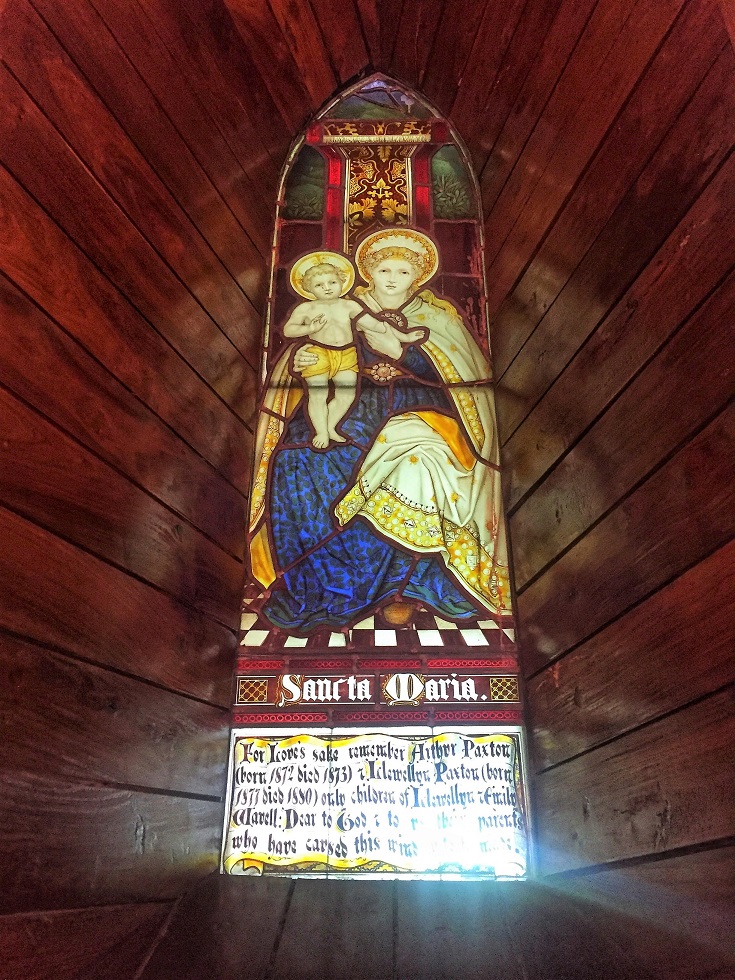 Sancta Maria.
For Love's sake remember Arthur Paxton
(born 1872 died 1873) & Llewellyn Paxton (born
1877 died 1880) only children of Llewellyn & Emily
Wavell: Dear to God & to their parents
who have caused this window made.